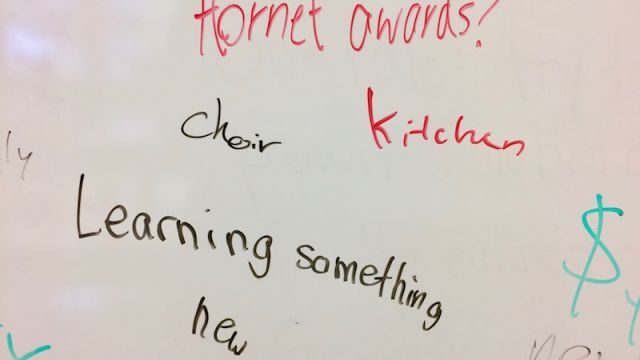 Hornet awards!
Choir
Kitchen
Learning something
new
$